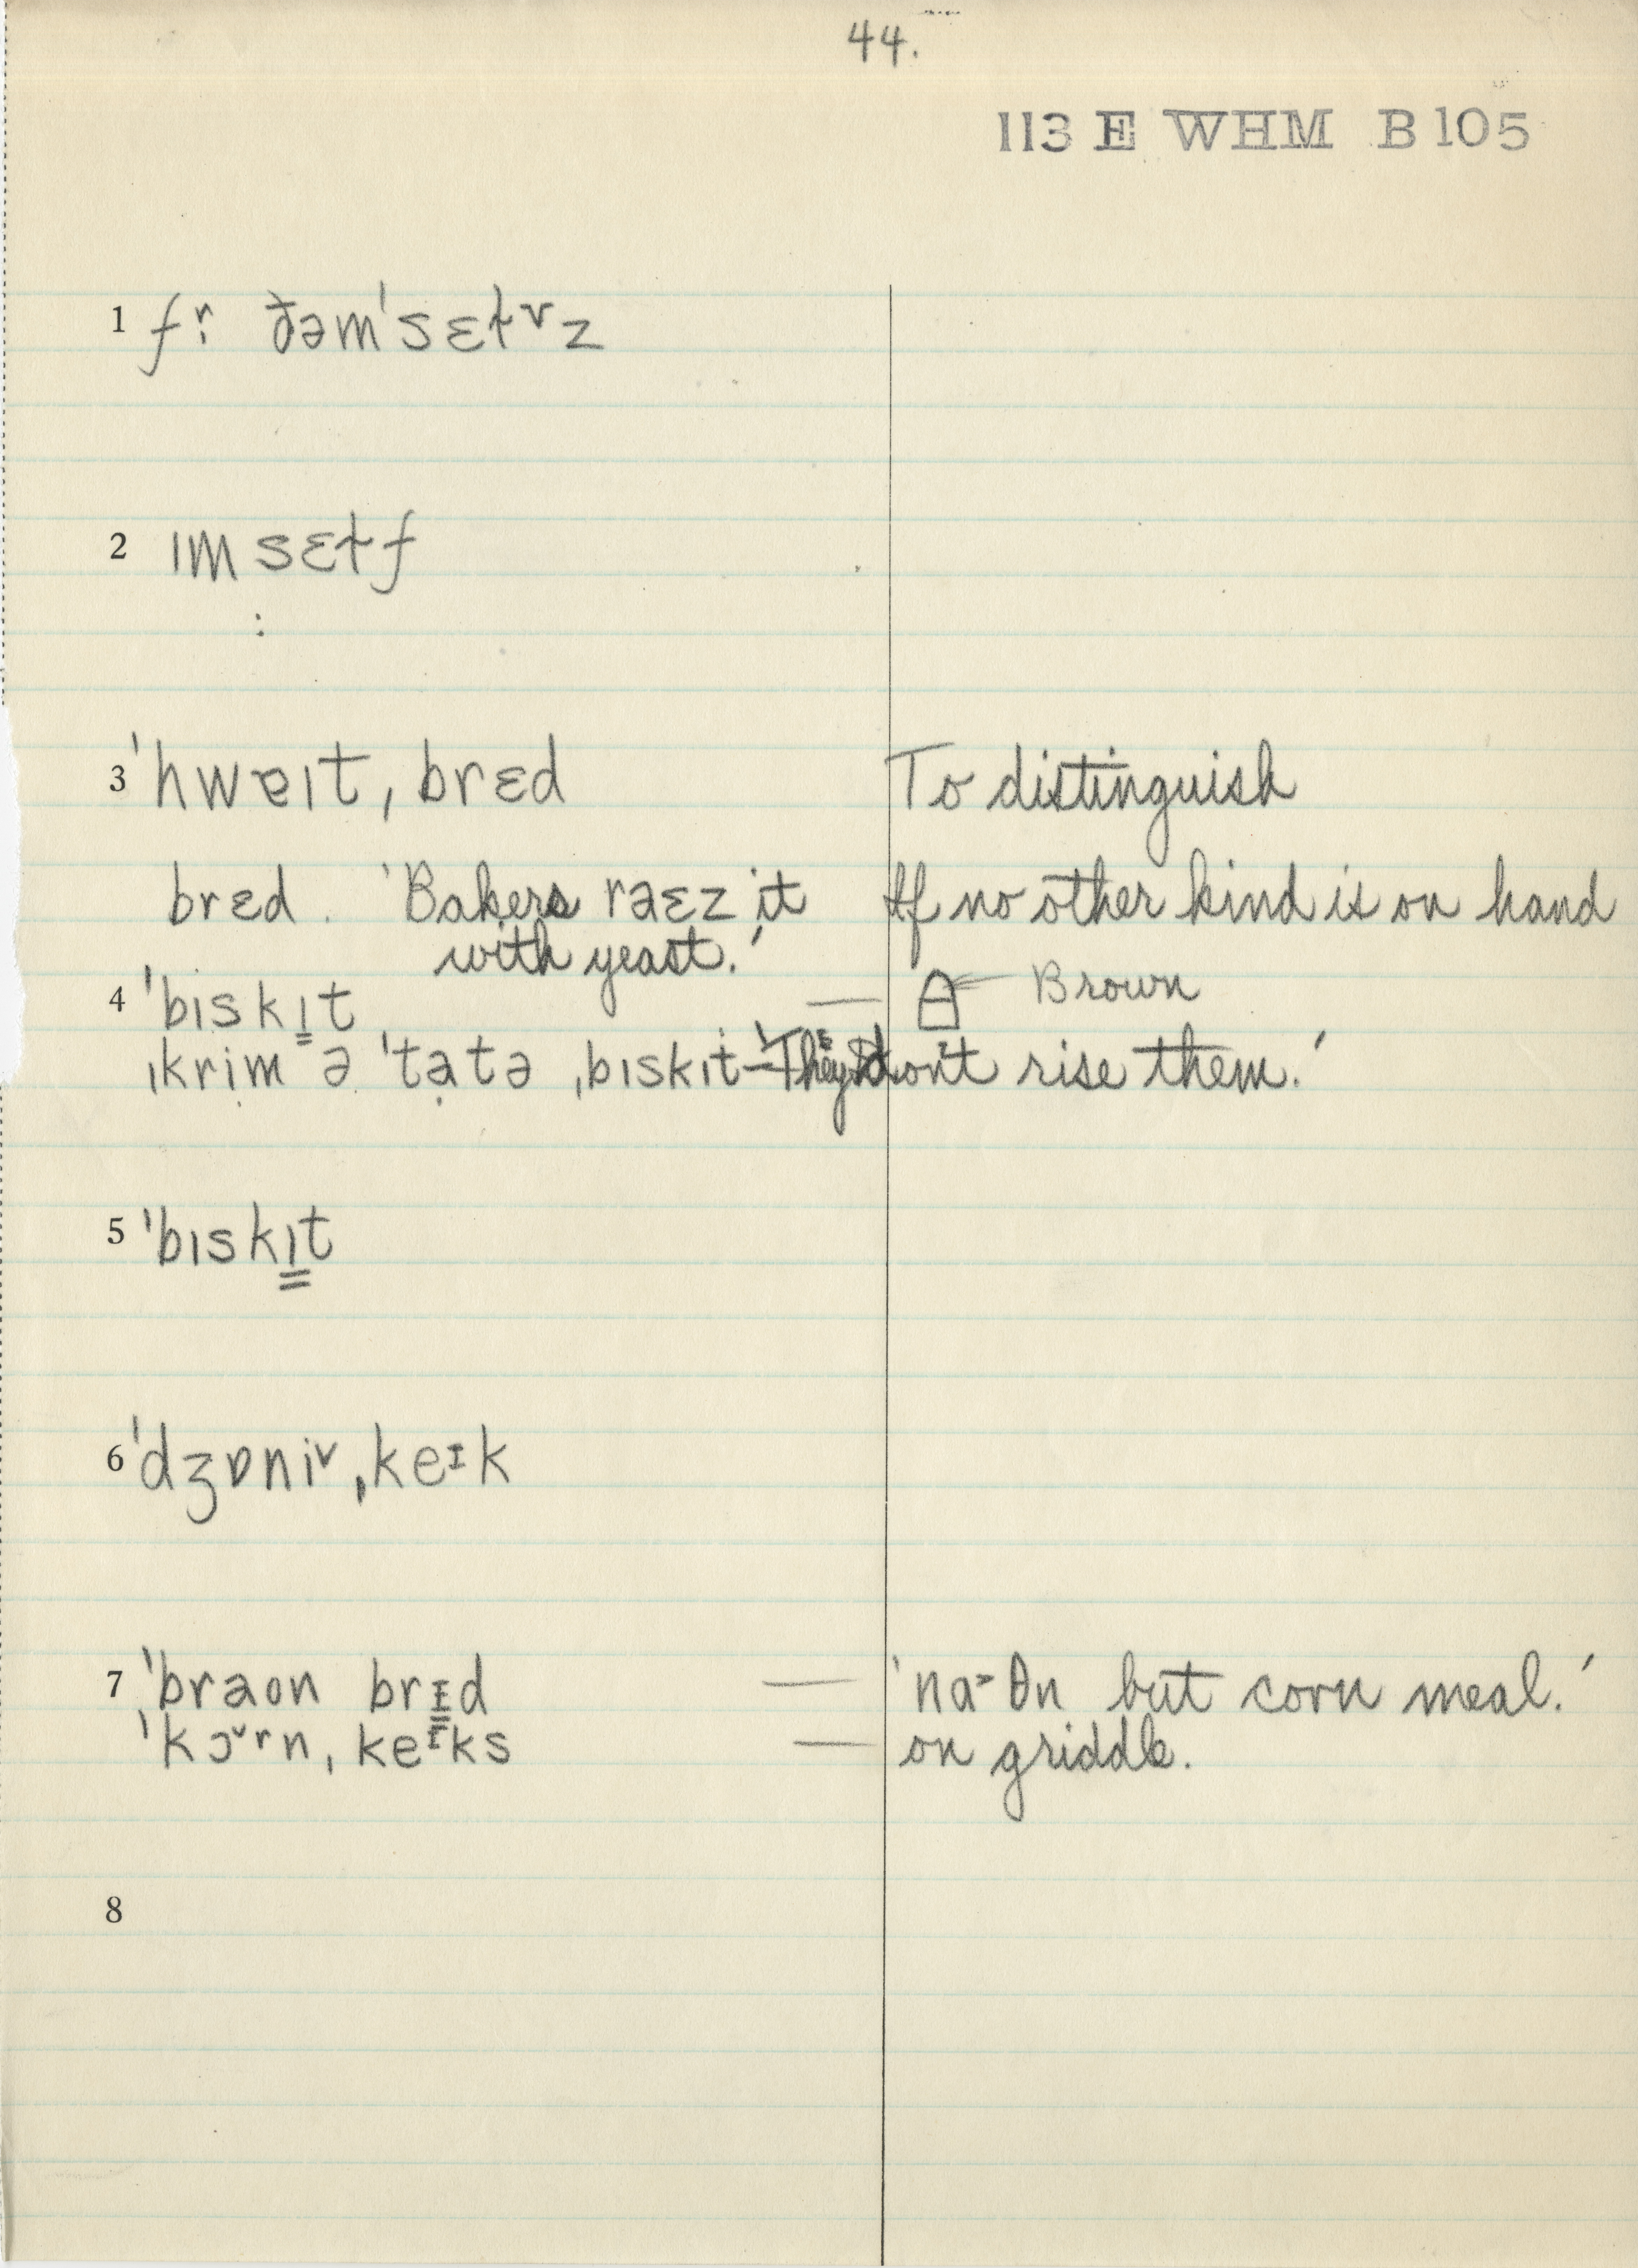 44.
113 E WHM B 105
1 fr̩ ðəmˈsɛɫvz
2 ɪmsɛɫf
3 ˈhwɐɪt ˌbrɛd To distinguish
brɛd. 'Bakers raɛz it If no other kind is on hand
with yeast.'
4 ˈbɪskɪ̳t — Brown
ˌkrim ə ˈtatə ˌbɪskɪt – 'They don't rise them.'
5 ˈbɪskɪ̳t
6 ˈdʒɒniᵛ ˌkeᶦk
7 ˈbraon brɪ̳d — 'na˃θn but corn meal.'
ˈkɔᵛrn ˌkeᶦks — on griddle.
8